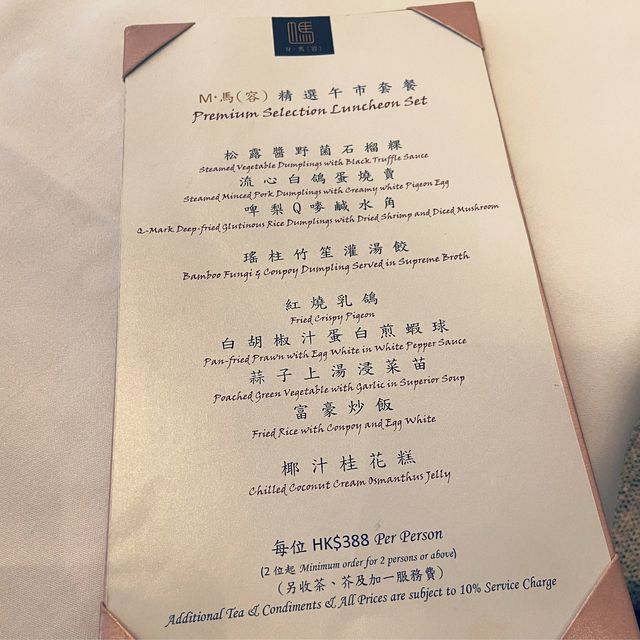 M·馬(容)
M·馬(容) 精選午市套餐
Premium Selection Luncheon Set
松露醬野菌石榴粿
Steamed Vegetable Dumplings with Black Truffle Sauce
流心白鴿蛋燒賣
Steamed Minced Pork Dumplings with Creamy white Pigeon Egg
啤梨Q嘜鹹水角
Q-Mark Deep-fried Glutinous Rice Dumplings with Dried Shrimp and Diced Mushroom
瑤柱竹笙灌湯餃
Bamboo Fungi & Conpoy Dumpling Served in Supreme Broth
紅燒乳鴿
Fried Crispy Pigeon
白胡椒汁蛋白煎蝦球
Pan-fried Prawn with Egg White in White Pepper Sauce
蒜子上湯浸菜苗
Poached Green Vegetable with Garlic in Superior Soup
富豪炒飯
Fried Rice with Conpoy and Egg White
椰汁桂花糕
Chilled Coconut Cream Osmanthus Jelly
每位 HK$388 Per Person
(2 位起 Minimum order for 2 persons or above)
(另收茶、芥及加一服務費)
Additional Tea & Condiments & All Prices are subject to 10% Service Charge